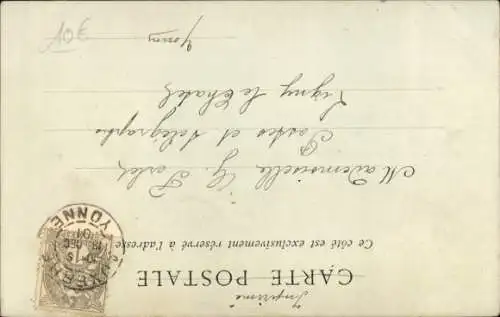 Imprimé
CARTE POSTALE
Ce côté est exclusivement réservé à l'adresse
Mademoiselle G.
Postes et télégraphe
Ligny le Chatel
Yonne
YONNE
10€